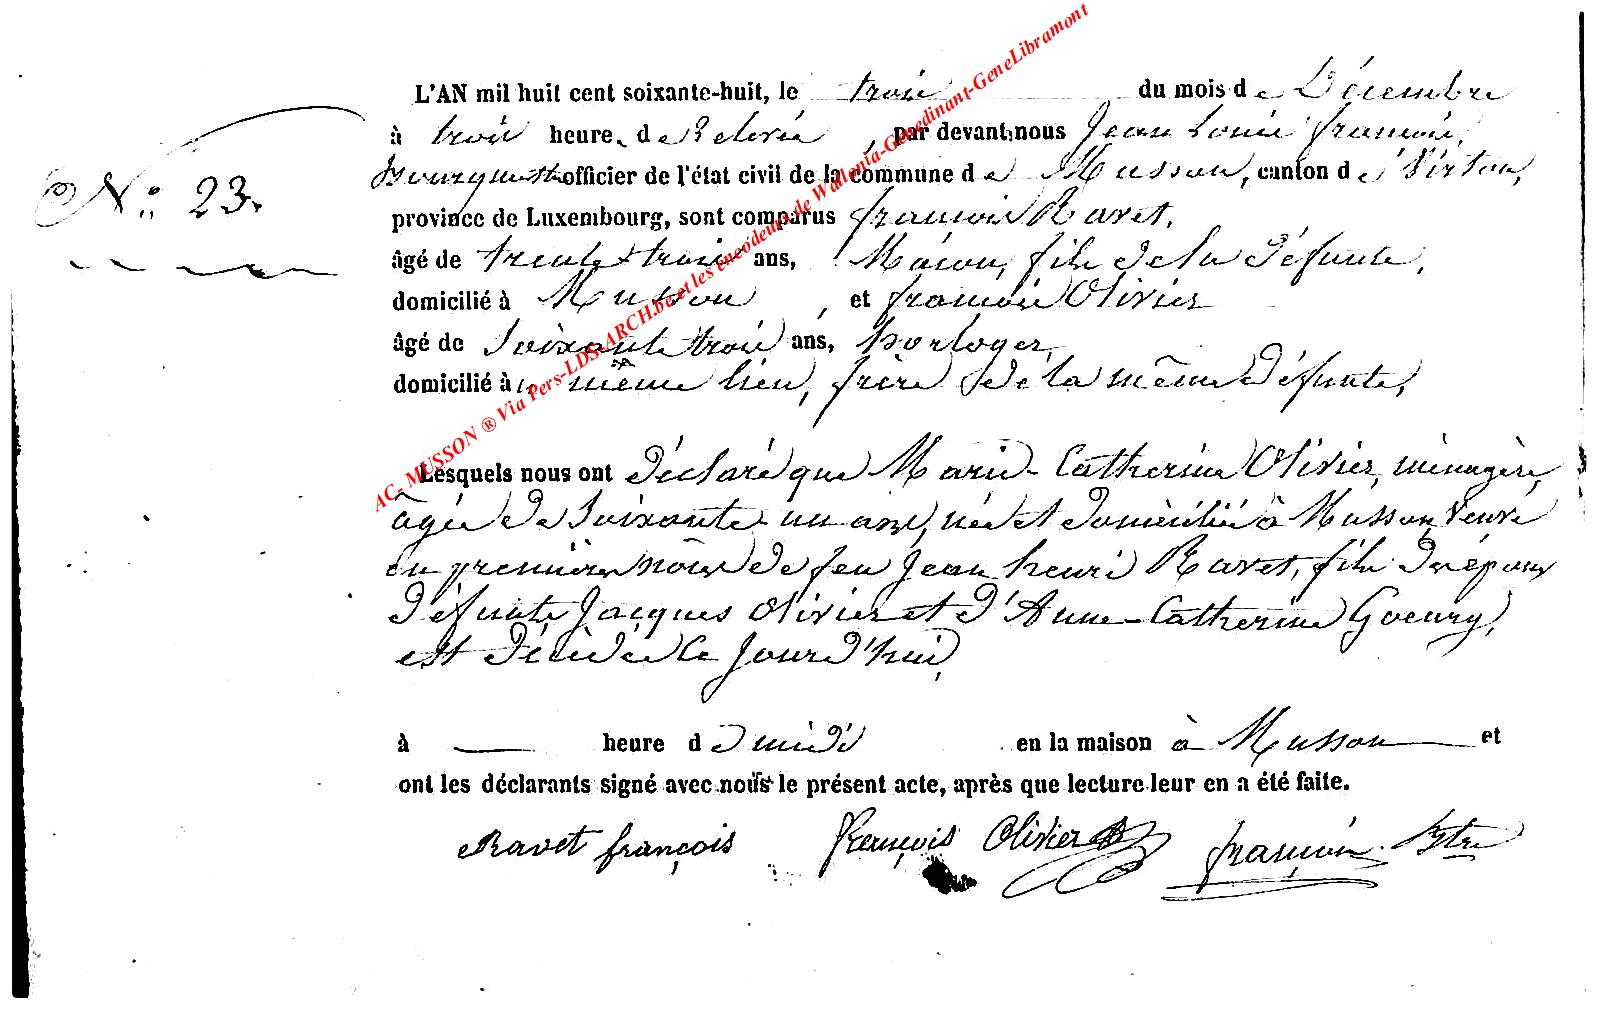 L'AN mil huit cent soixante-huit, le trois du mois de Décembre
à trois heure, de Relevée, par devant nous Jean Louis François,
N.° 23.
Bourgmestre officier de l'état civil de la commune de Musson, canton de Virton,
province de Luxembourg, sont comparus françois Ravet,
âgé de trente trois ans, Maçon, fils de la Défunte,
domicilié à Musson, et françois Olivier
âgé de Soixante trois ans, horloger,
domicilié à même lieu, frère de la même Défunte,
Lesquels nous ont déclaré que Marie-Catherine Olivier, ménagère,
âgée de Soixante un ans, née et domiciliée à Musson, veuve
en premières nôces de feu Jean henri Ravet, fille des époux
Défunts Jacques Olivier et d'Anne-Catherine Goeury,
est décédée ce Jourd'hui,
à — heure de midi en la maison à Musson et
ont les déclarants signé avec nous le présent acte, après que lecture leur en a été faite.
Ravet françois françois Olivier françois. Btre
AC- MUSSON ® Via Pers-LDS-ARCH.be et les encodeurs de Wallonia-Genedinant-GeneLibramont